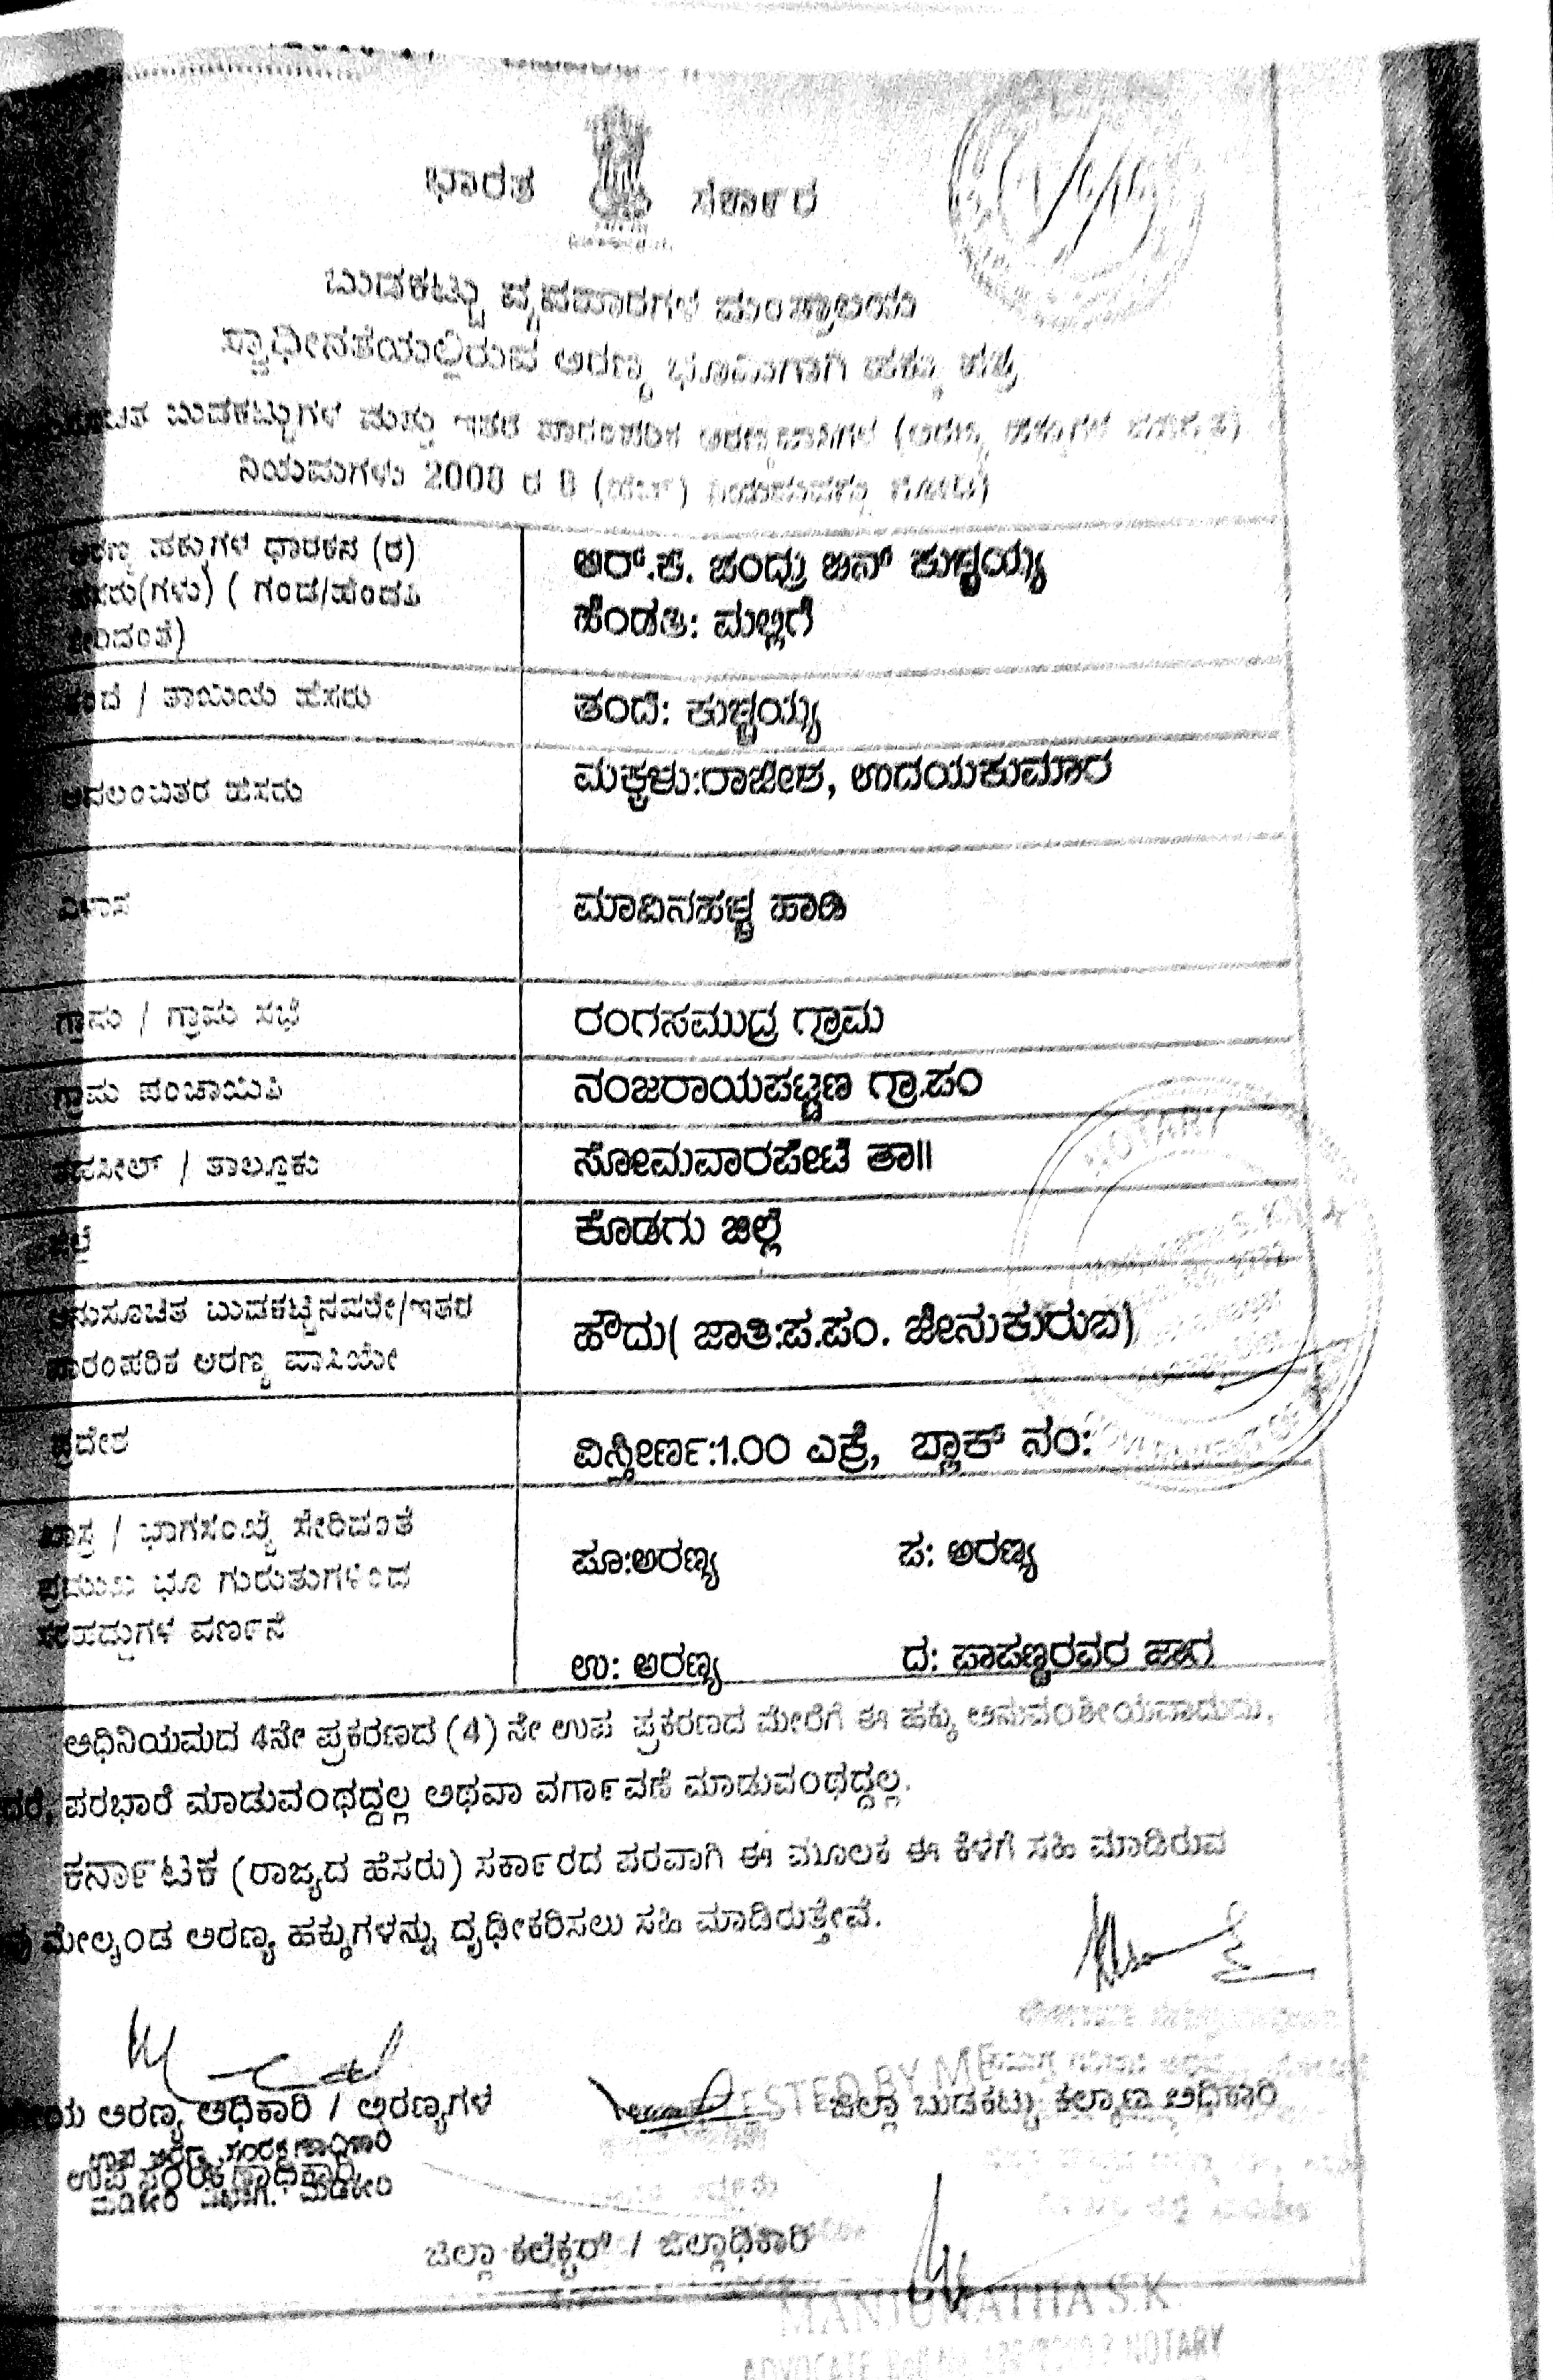 ಭಾರತ ಸರ್ಕಾರ
ಬುಡಕಟ್ಟು ವ್ಯವಹಾರಗಳ ಮಂತ್ರಾಲಯ
ಸ್ವಾಧೀನತೆಯಲ್ಲಿರುವ ಅರಣ್ಯ ಭೂಮಿಗಾಗಿ ಹಕ್ಕು ಪತ್ರ
ಬುಡಕಟ್ಟುಗಳ ಮತ್ತು ಇತರ ಪಾರಂಪರಿಕ ಅರಣ್ಯವಾಸಿಗಳ (ಅರಣ್ಯ ಹಕ್ಕುಗಳ ಮಾನ್ಯತೆ)
ನಿಯಮಗಳು 2008 ರ 8 (ಹೆಚ್) ನಿಯಮವನ್ನು ನೋಡಿ)
ಅರಣ್ಯ ಹಕ್ಕುಗಳ ಧಾರಕನ (ರ)
ಹೆಸರು(ಗಳು) ( ಗಂಡ/ಹೆಂಡತಿ
ಸೇರಿದಂತೆ)
ಆರ್.ಕೆ. ಚಂದ್ರು ಬಿನ್ ಕುಳ್ಳಯ್ಯ
ಹೆಂಡತಿ: ಮಲ್ಲಿಗೆ
ತಂದೆ / ತಾಯಿಯ ಹೆಸರು
ತಂದೆ: ಕುಳ್ಳಯ್ಯ
ಅವಲಂಬಿತರ ಹೆಸರು
ಮಕ್ಕಳು:ರಾಜೇಶ, ಉದಯಕುಮಾರ
ವಿಳಾಸ
ಮಾವಿನಹಳ್ಳ ಹಾಡಿ
ಗ್ರಾಮ / ಗ್ರಾಮ ಸಭೆ
ರಂಗಸಮುದ್ರ ಗ್ರಾಮ
ಗ್ರಾಮ ಪಂಚಾಯಿತಿ
ನಂಜರಾಯಪಟ್ಟಣ ಗ್ರಾ.ಪಂ
ತಹಸೀಲ್ / ತಾಲ್ಲೂಕು
ಸೋಮವಾರಪೇಟೆ ತಾ||
ಜಿಲ್ಲೆ
ಕೊಡಗು ಜಿಲ್ಲೆ
ಅನುಸೂಚಿತ ಬುಡಕಟ್ಟಿನವರೇ/ಇತರ
ಪಾರಂಪರಿಕ ಅರಣ್ಯ ವಾಸಿಯೇ
ಹೌದು( ಜಾತಿ:ಪ.ಪಂ. ಜೇನುಕುರುಬ)
ಪ್ರದೇಶ
ವಿಸ್ತೀರ್ಣ:1.00 ಎಕ್ರೆ, ಬ್ಲಾಕ್ ನಂ:
ಖಾಸ್ರ / ಭಾಗಸಂಖ್ಯೆ ಸೇರಿದಂತೆ
ಪ್ರಮುಖ ಭೂ ಗುರುತುಗಳಿಂದ
ಸರಹದ್ದುಗಳ ವರ್ಣನೆ
ಪೂ:ಅರಣ್ಯ ಪ: ಅರಣ್ಯ
ಉ: ಅರಣ್ಯ ದ: ಪಾಪಣ್ಣರವರ ಜಾಗ
ಅಧಿನಿಯಮದ 4ನೇ ಪ್ರಕರಣದ (4) ನೇ ಉಪ ಪ್ರಕರಣದ ಮೇರೆಗೆ ಈ ಹಕ್ಕು ಅನುವಂಶೀಯವಾದುದು,
ಪರಭಾರೆ ಮಾಡುವಂಥದ್ದಲ್ಲ ಅಥವಾ ವರ್ಗಾವಣೆ ಮಾಡುವಂಥದ್ದಲ್ಲ.
ಕರ್ನಾಟಕ (ರಾಜ್ಯದ ಹೆಸರು) ಸರ್ಕಾರದ ಪರವಾಗಿ ಈ ಮೂಲಕ ಈ ಕೆಳಗೆ ಸಹಿ ಮಾಡಿರುವ
ಮೇಲ್ಕಂಡ ಅರಣ್ಯ ಹಕ್ಕುಗಳನ್ನು ದೃಢೀಕರಿಸಲು ಸಹಿ ಮಾಡಿರುತ್ತೇವೆ.
ಅರಣ್ಯ ಅಧಿಕಾರಿ / ಅರಣ್ಯಗಳ
ಉಪ ಸಂರಕ್ಷಣಾಧಿಕಾರಿ
ಉಪ ಅರಣ್ಯ ಸಂರಕ್ಷಣಾಧಿಕಾರಿ
ಮಡಿಕೇರಿ ವಿಭಾಗ. ಮಡಿಕೇರಿ
ಜಿಲ್ಲಾ ಬುಡಕಟ್ಟು ಕಲ್ಯಾಣ ಅಧಿಕಾರಿ
ಜಿಲ್ಲಾ ಕಲೆಕ್ಟರ್ / ಜಿಲ್ಲಾಧಿಕಾರಿ
NOTARY
BY ME
MANJUNATHA S.K.
ADVOCATE NOTARY